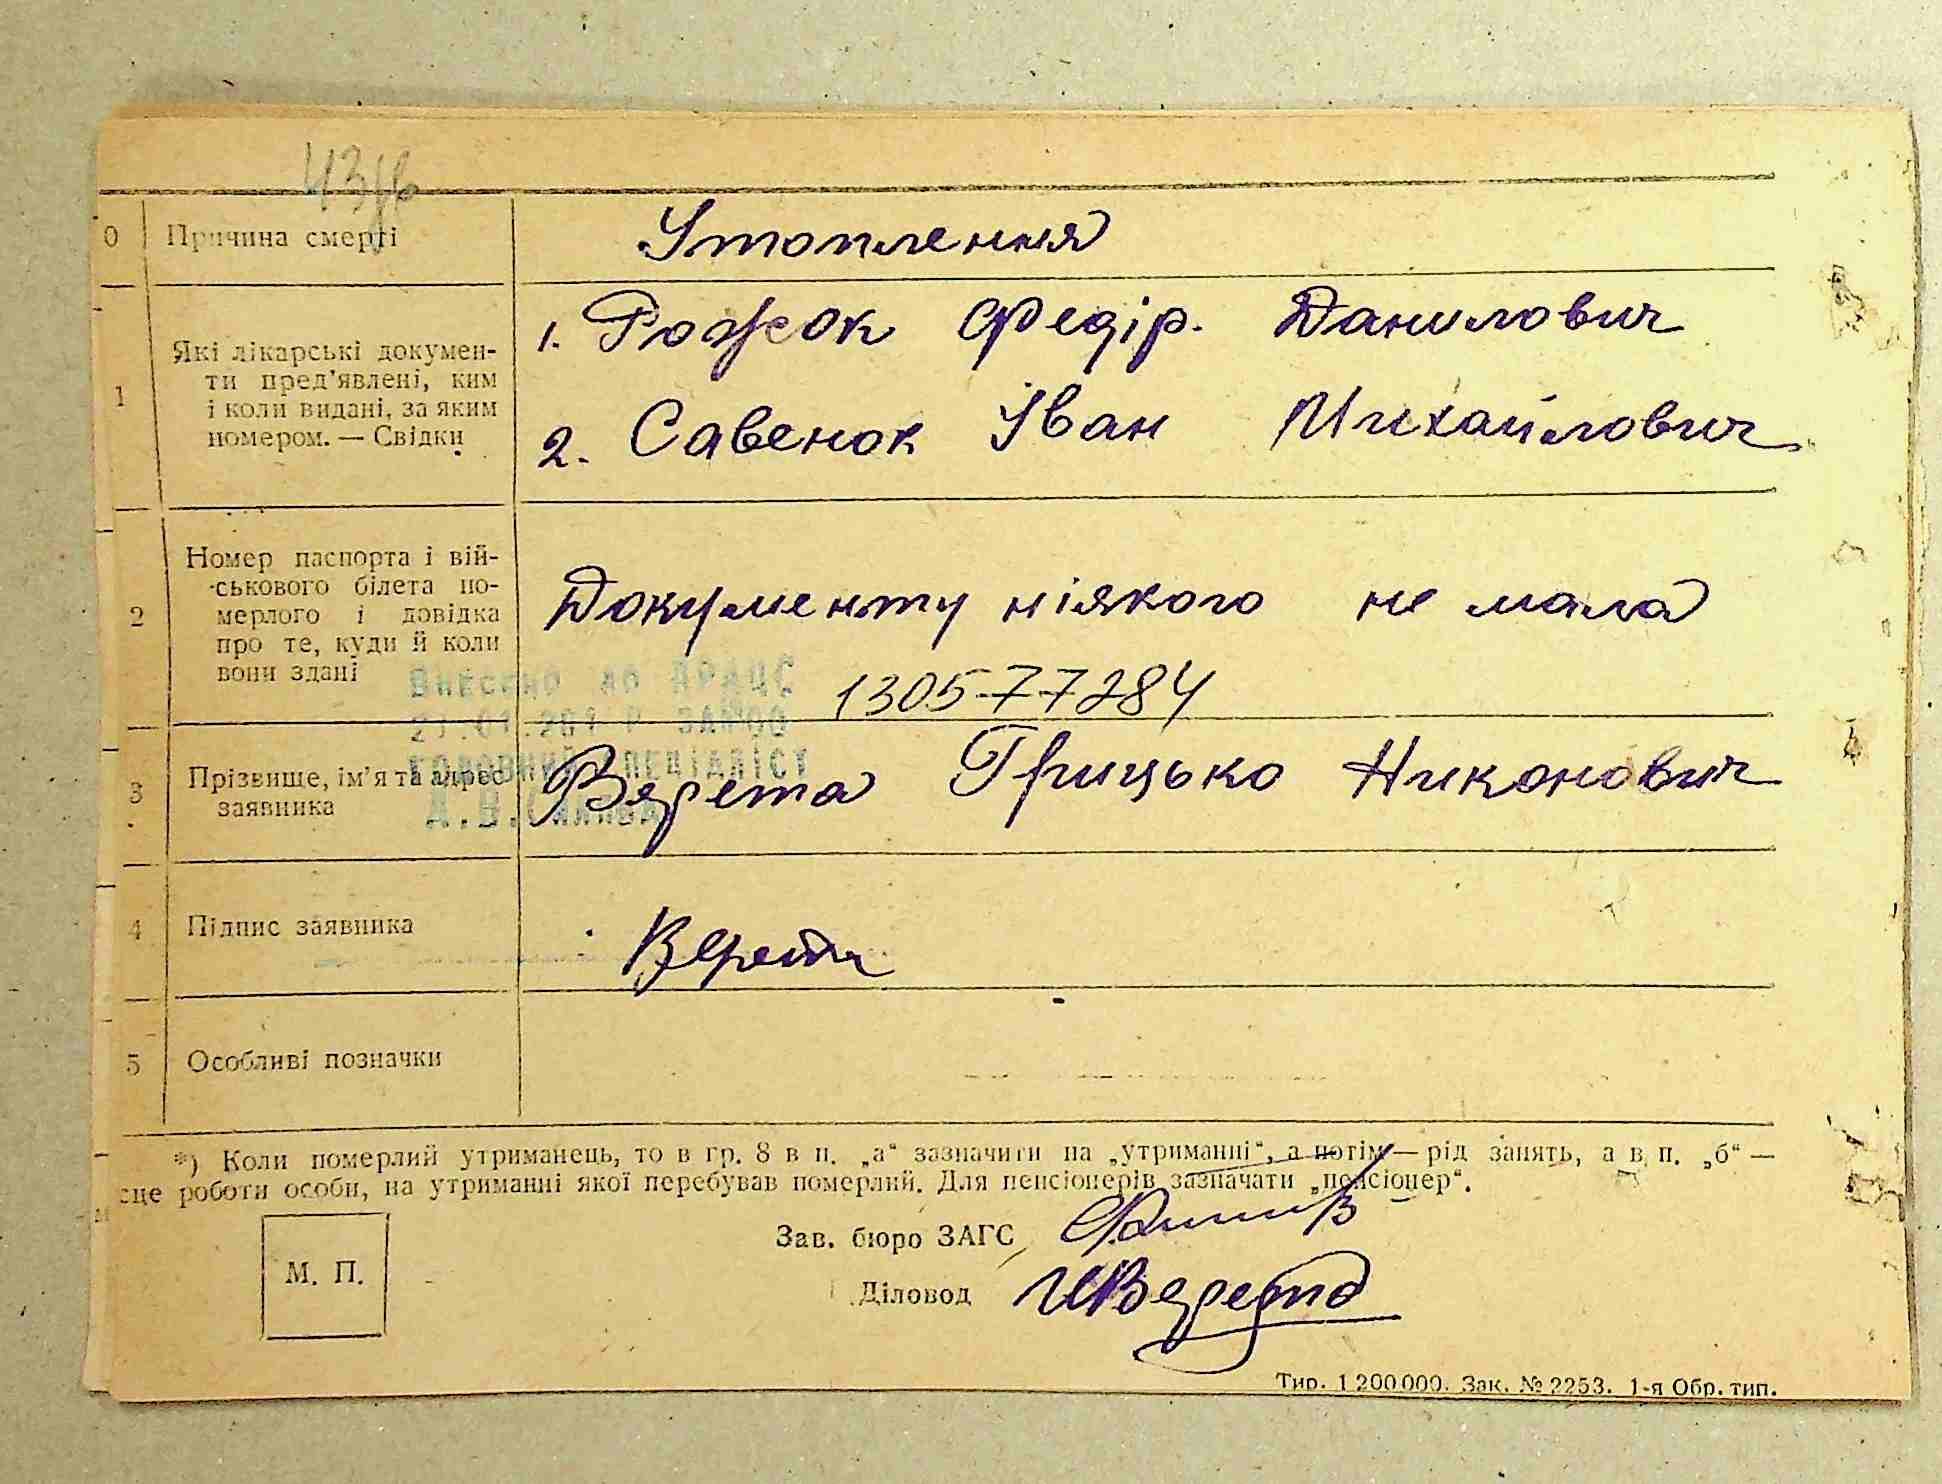 0 Причина смерті Утоплення
1 Які лікарські докумен-
ти пред'явлені, ким
і коли видані, за яким
номером. — Свідки
1. Рожок Федір. Данилович
2. Савенок Іван Михайлович
2 Номер паспорта і вій-
ськового білета по-
мерлого і довідка
про те, куди й коли
вони здані
Документу ніякого не мала
130577284
Внесено до ДРАЦС
головний спеціаліст
3 Прізвище, ім'я та адрес
заявника
Верета Грицько Никонович
4 Підпис заявника Верета
5 Особливі позначки
*) Коли померлий утриманець, то в гр. 8 в п. „а“ зазначити на „утриманні“, а потім — рід занять, а в п. „б“ —
сце роботи особи, на утриманні якої перебував померлий. Для пенсіонерів зазначати „пенсіонер“.
Зав. бюро ЗАГС
М. П.
Діловод Верета
Тир. 1 200 000. Зак. № 2253. 1-я Обр. тип.